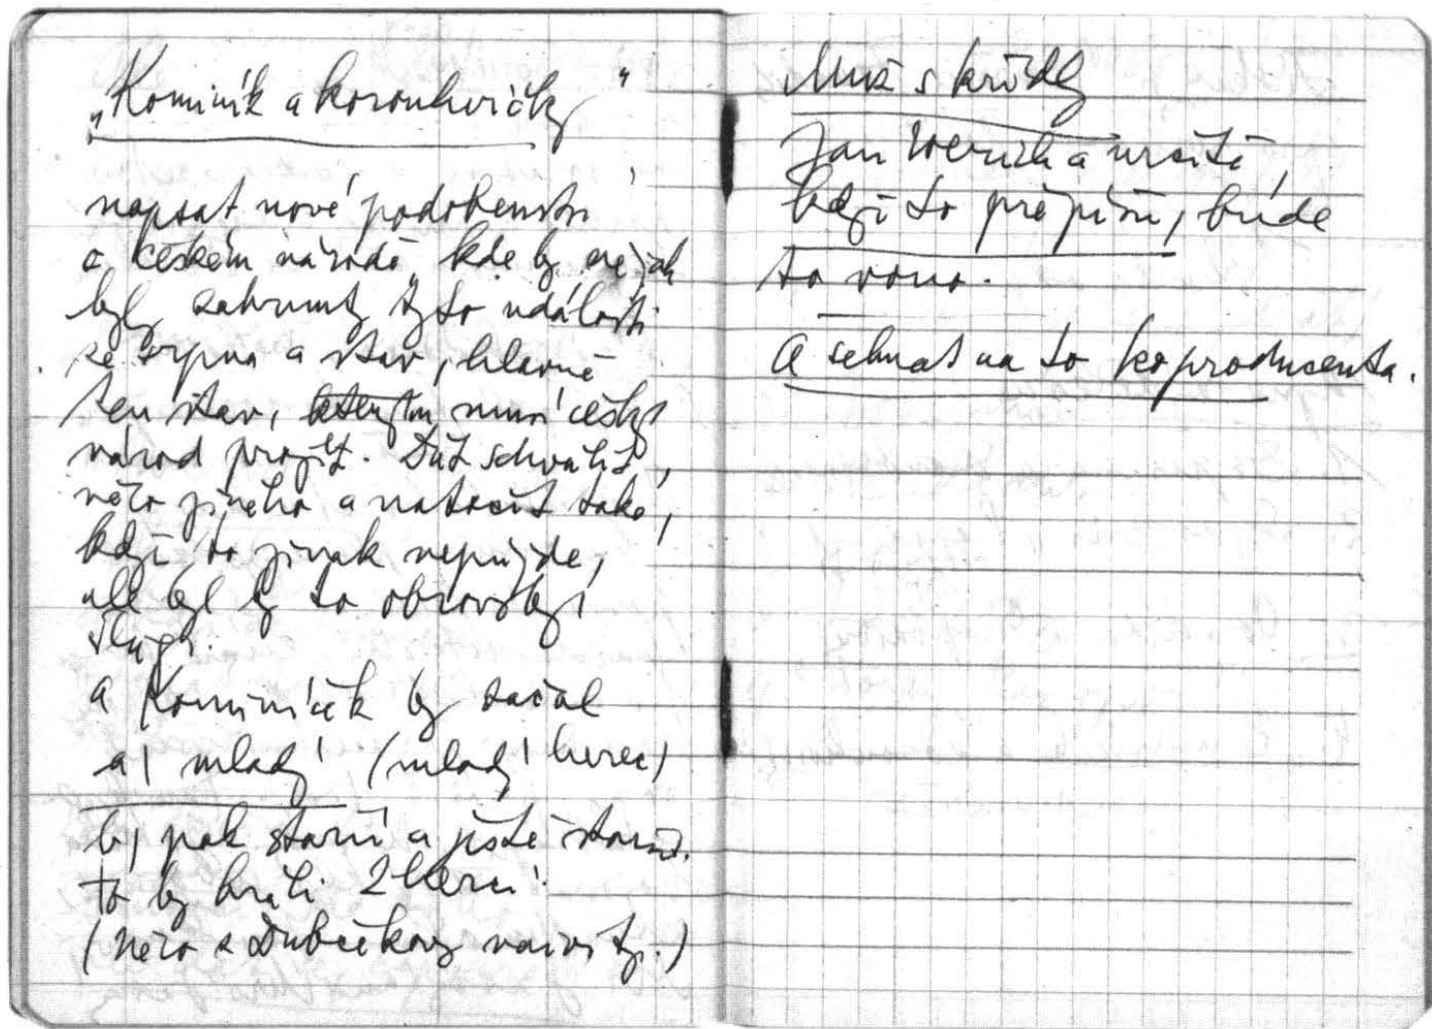 „Kominík a korouhvičky“
napsat nové podobenství
o českém národě, kde by nějak
byly zahrnuty tyto události
ze srpna a stav, hlavně
ten stav, kterým musí český
národ projít. Dát schválit
něco jiného a natočit toto,
když to jinak nepůjde,
ale byl by to obrovský
šlágr.
a Komíníček by začal
a) mladý (mladý herec)
b) pak starší a ještě starší.
to by hráli 2 herci.
(něco z Dubčekovy naivity.)
Muž s křídly
Jan Werich a určitě,
když to přepíšu, bude
to vono.
A sehnat na to koproducenta.